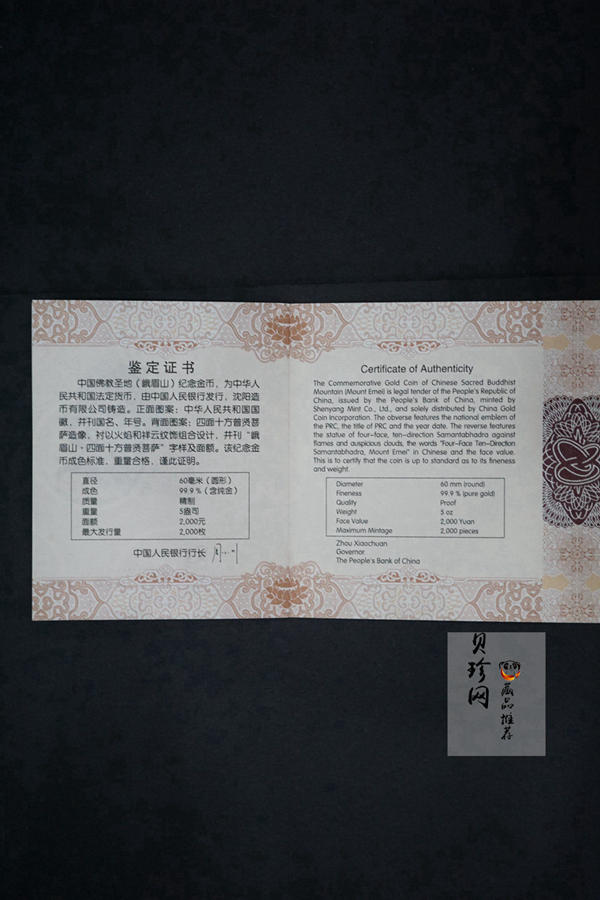 鉴定证书
中国佛教圣地（峨眉山）纪念金币，为中华人
民共和国法定货币，由中国人民银行发行，沈阳造
币有限公司铸造。正面图案：中华人民共和国国
徽，并刊国名、年号。背面图案：四面十方普贤菩
萨造像，衬以火焰和祥云纹饰组合设计，并刊“峨
眉山·四面十方普贤菩萨”字样及面额。该纪念金
币成色标准，重量合格，谨此证明。
直径 60毫米（圆形）
成色 99.9％（含纯金）
质量 精制
重量 5盎司
面额 2,000元
最大发行量 2,000枚
中国人民银行行长
Certificate of Authenticity
The Commemorative Gold Coin of Chinese Sacred Buddhist
Mountain (Mount Emei) is legal tender of the People's Republic of
China, issued by the People's Bank of China, minted by
Shenyang Mint Co., Ltd., and solely distributed by China Gold
Coin Incorporation. The obverse features the national emblem of
the PRC, the title of PRC and the year date. The reverse features
the statue of four-face, ten-direction Samantabhadra against
flames and auspicious clouds, the words "Four-Face Ten-Direction
Samantabhadra, Mount Emei" in Chinese and the face value.
This is to certify that the coin is up to standard as to its fineness
and weight.
Diameter 60 mm (round)
Fineness 99.9 % (pure gold)
Quality Proof
Weight 5 oz
Face Value 2,000 Yuan
Maximum Mintage 2,000 pieces
Zhou Xiaochuan
Governor
The People's Bank of China
贝珍网
藏品推荐